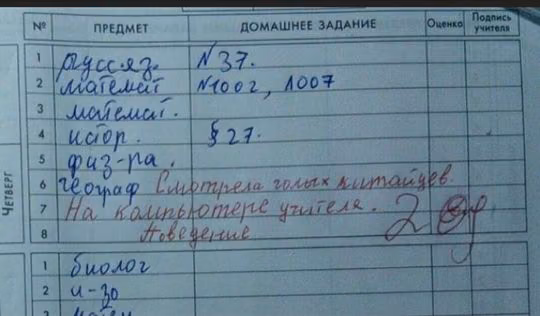 № ПРЕДМЕТ ДОМАШНЕЕ ЗАДАНИЕ Оценка Подпись учителя
ЧЕТВЕРГ
1 русс.яз. №37.
2 математ №1002, 1007
3 математ.
4 истор. §27.
5 физ-ра.
6 географ Смотрела голых китайцев.
7 На компьютере учителя. 2
8 Поведение
1 биолог
2 и-зо
3 матем